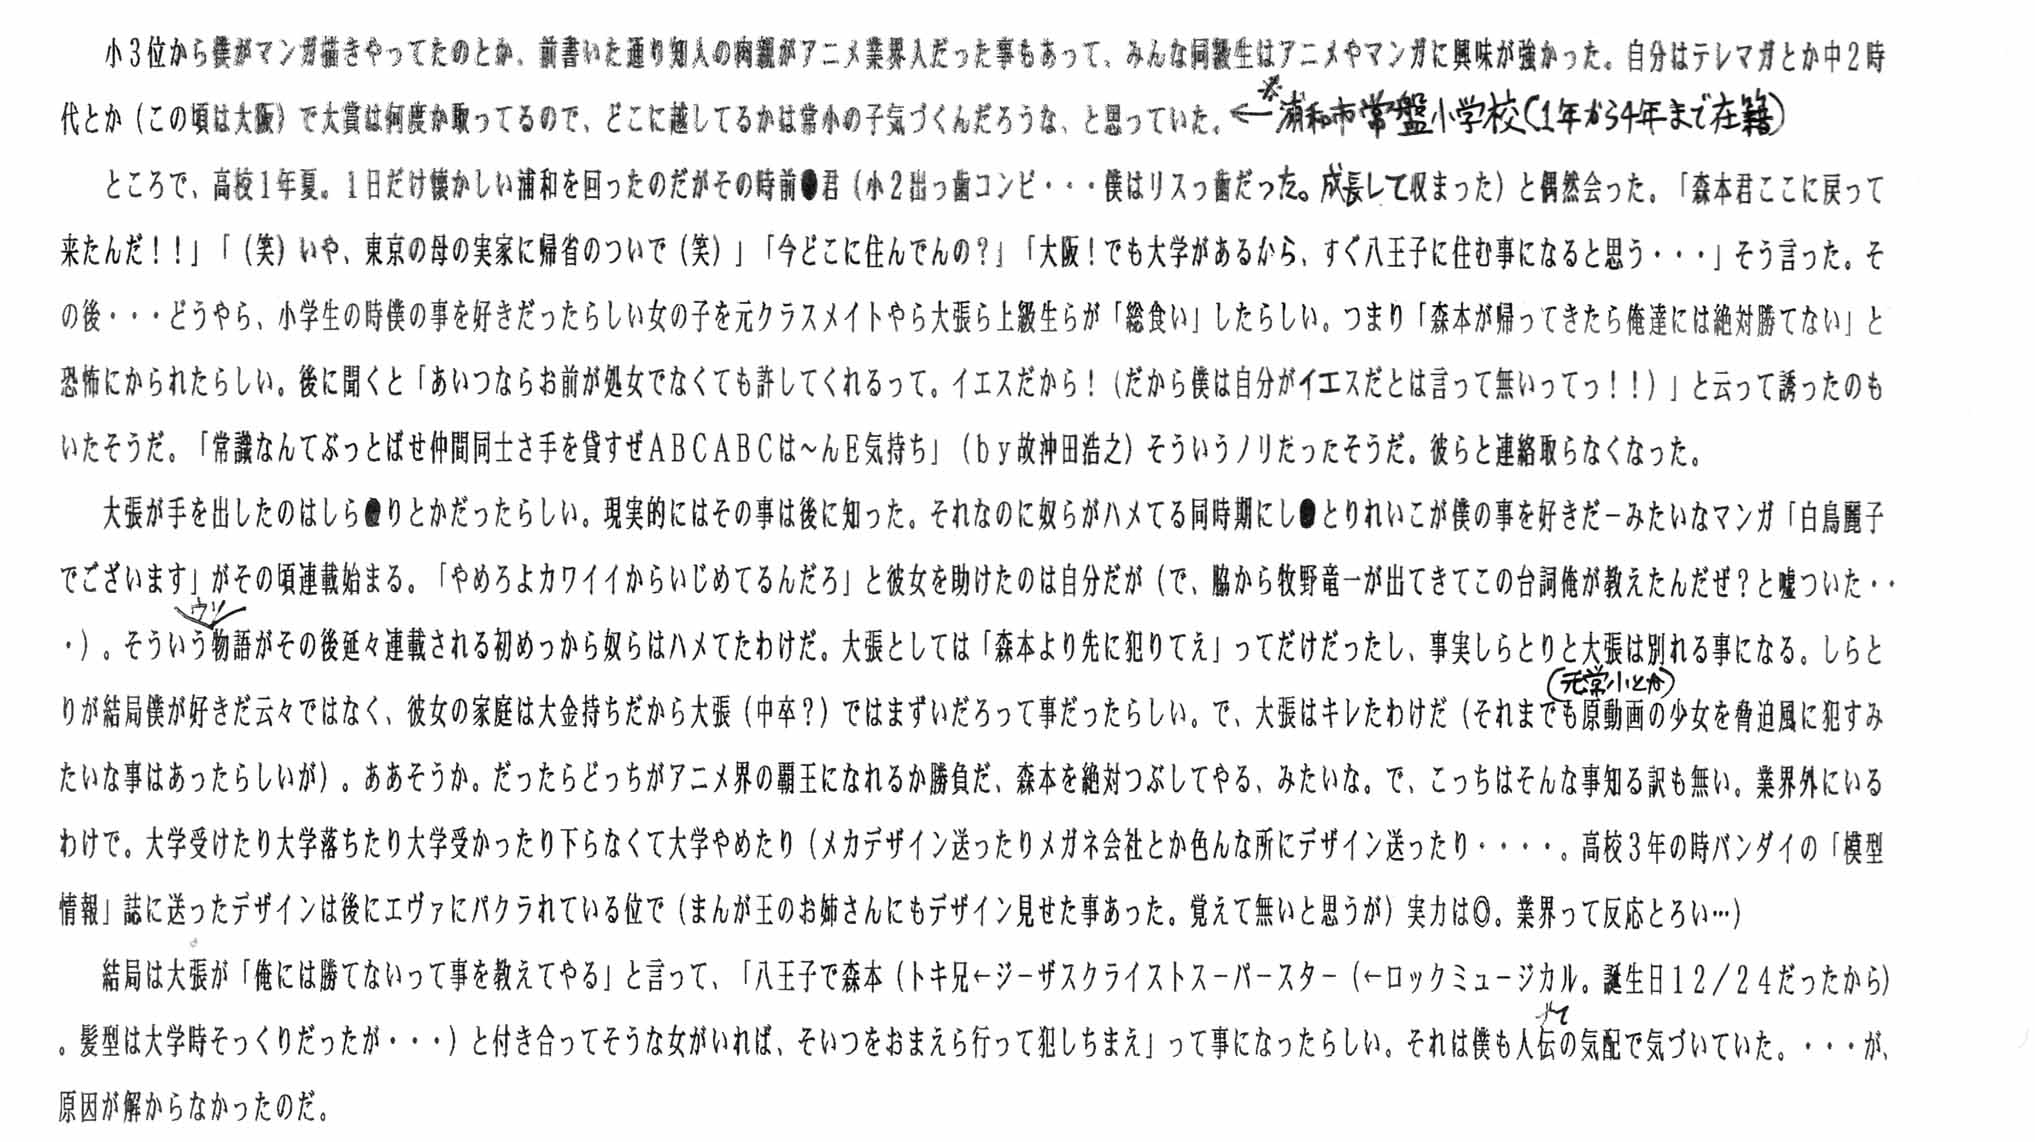 小３位から僕がマンガ描きやってたのとか、前書いた通り知人の肉親がアニメ業界人だった事もあって、みんな同級生はアニメやマンガに興味が強かった。自分はテレマガとか中２時
代とか（この頃は大阪）で大賞は何度か取ってるので、どこに越してるかは常小の子気づくんだろうな、と思っていた。←※浦和市常盤小学校（１年から４年まで在籍）
ところで、高校１年夏。１日だけ懐かしい浦和を回ったのだがその時前●君（小２出っ歯コンビ・・・僕はリスっ歯だった。成長して収まった）と偶然会った。「森本君ここに戻って
来たんだ！！」「（笑）いや、東京の母の実家に帰省のついで（笑）」「今どこに住んでんの？」「大阪！でも大学があるから、すぐ八王子に住む事になると思う・・・」そう言った。そ
の後・・・どうやら、小学生の時僕の事を好きだったらしい女の子を元クラスメイトやら大張ら上級生らが「総食い」したらしい。つまり「森本が帰ってきたら俺達には絶対勝てない」と
恐怖にかられたらしい。後に聞くと「あいつならお前が処女でなくても許してくれるって。イエスだから！（だから僕は自分がイエスだとは言って無いってっ！！）」と云って誘ったのも
いたそうだ。「常識なんてぶっとばせ仲間同士さ手を貸すぜＡＢＣＡＢＣは～んＥ気持ち」（ｂｙ故沖田浩之）そういうノリだったそうだ。彼らと連絡取らなくなった。
大張が手を出したのはしら●りとかだったらしい。現実的にはその事は後に知った。それなのに奴らがハメてる同時期にし●とりれいこが僕の事を好きだーみたいなマンガ「白鳥麗子
でございます」がその頃連載始まる。「やめろよカワイイからいじめてるんだろ」と彼女を助けたのは自分だが（で、脇から牧野竜一が出てきてこの台詞俺が教えたんだぜ？と嘘ついた・・
ウソ
・）。そういう物語がその後延々連載される初めっから奴らはハメてたわけだ。大張としては「森本より先に犯りてえ」ってだけだったし、事実しらとりと大張は別れる事になる。しらと
（元常小とか）
りが結局僕が好きだ云々ではなく、彼女の家庭は大金持ちだから大張（中卒？）ではまずいだろって事だったらしい。で、大張はキレたわけだ（それまでも原動画の少女を脅迫風に犯すみ
たいな事はあったらしいが）。ああそうか。だったらどっちがアニメ界の覇王になれるか勝負だ、森本を絶対つぶしてやる、みたいな。で、こっちはそんな事知る訳も無い。業界外にいる
わけで。大学受けたり大学落ちたり大学受かったり下らなくて大学やめたり（メカデザイン送ったりメガネ会社とか色んな所にデザイン送ったり・・・・。高校３年の時バンダイの「模型
情報」誌に送ったデザインは後にエヴァにパクラれている位で（まんが王のお姉さんにもデザイン見せた事あった。覚えて無いと思うが）実力は◎。業界って反応とろい…）
結局は大張が「俺には勝てないって事を教えてやる」と言って、「八王子で森本（トキ兄←ジーザスクライストスーパースター（←ロックミュージカル。誕生日１２／２４だったから）
。髪型は大学時そっくりだったが・・・）と付き合ってそうな女がいれば、そいつをおまえら行って犯しちまえ」って事になったらしい。それは僕も人伝の気配で気づいていた。・・・が、
原因が解からなかったのだ。